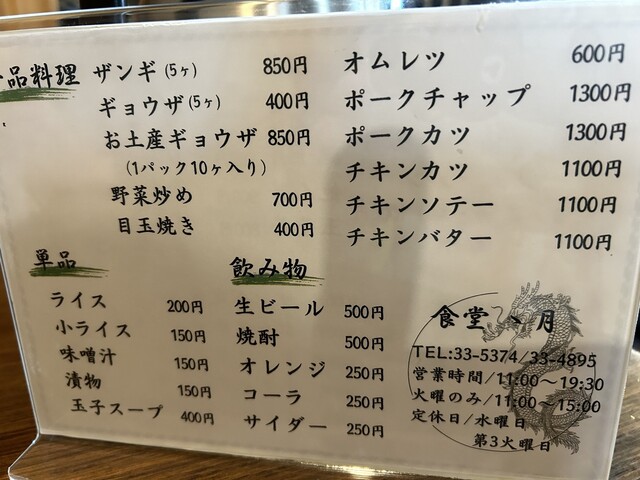 一品料理
ザンギ(5ヶ) 850円
ギョウザ(5ヶ) 400円
お土産ギョウザ 850円
(1パック10ヶ入り)
野菜炒め 700円
目玉焼き 400円
オムレツ 600円
ポークチャップ 1300円
ポークカツ 1300円
チキンカツ 1100円
チキンソテー 1100円
チキンバター 1100円
単品
ライス 200円
小ライス 150円
味噌汁 150円
漬物 150円
玉子スープ 400円
飲み物
生ビール 500円
焼酎 500円
オレンジ 250円
コーラ 250円
サイダー 250円
食堂 八月
TEL:33-5374/33-4895
営業時間/11:00〜19:30
火曜のみ/11:00〜15:00
定休日/水曜日
第3火曜日